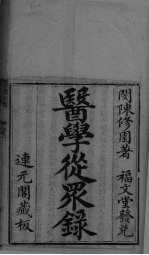 閩陳修園著 福文堂發兌
醫學從眾錄
連元閣藏板